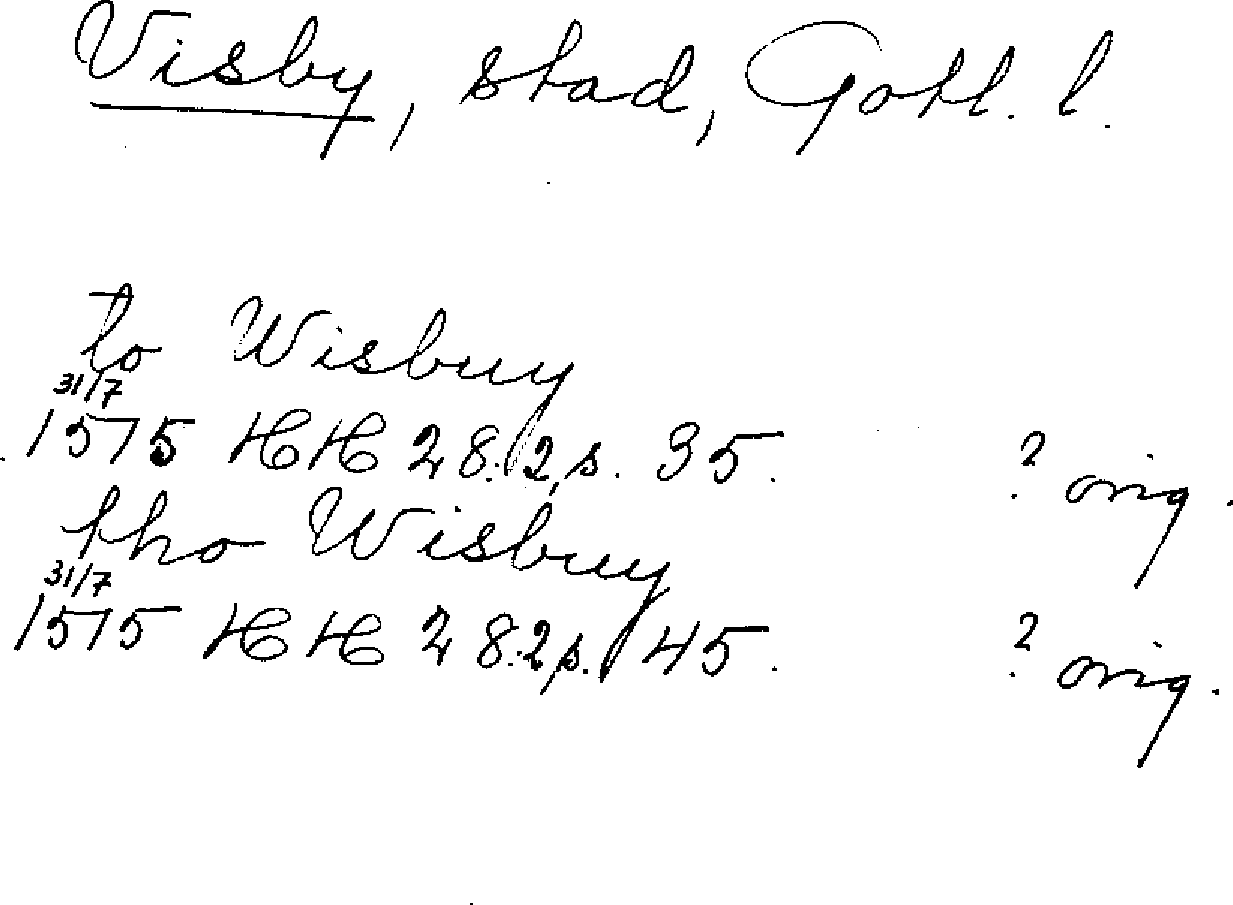 Visby, stad, Gotl. l.
to Wisbuy
31/7
1575 HH 28:2, s. 35. ? orig.
tho Wisbuy
31/7
1575 HH 28:2, s. 45. ? orig.